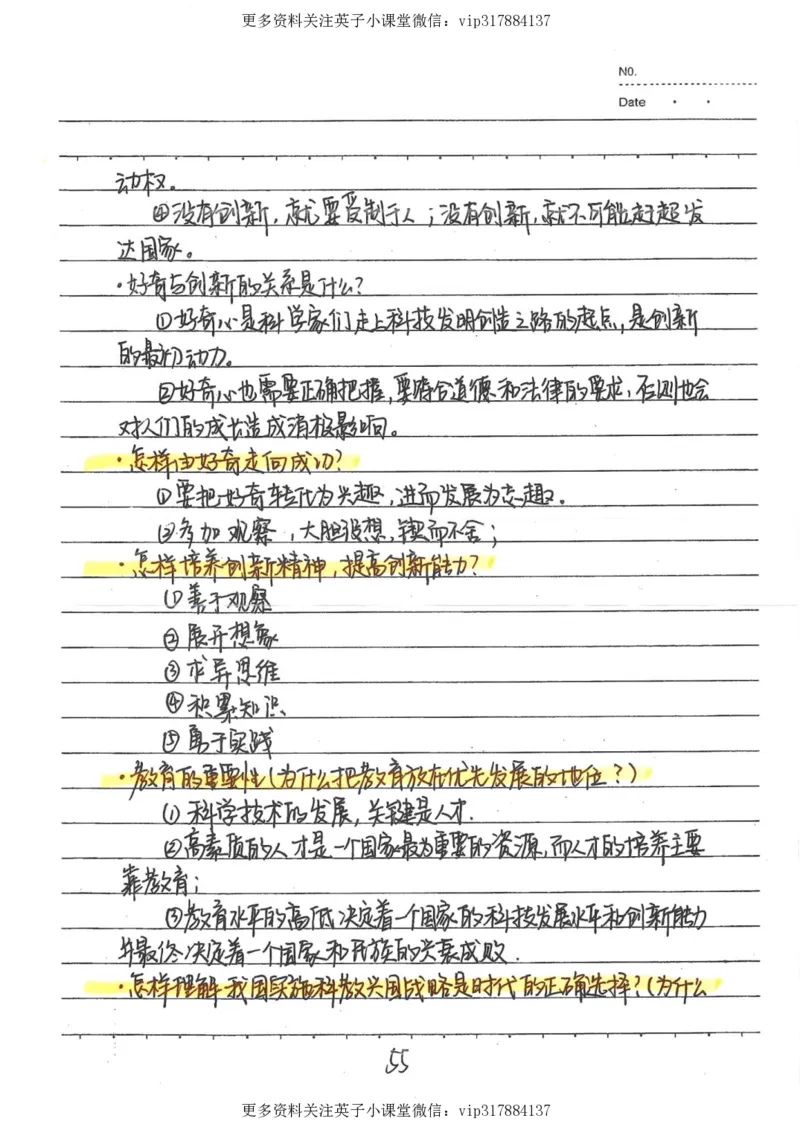 更多资料关注英子小课堂微信：vip317884137
NO.
Date
动权。
④没有创新，就要受制于人；没有创新，就不可能赶超发
达国家。
·好奇与创新的关系是什么？
①好奇心是科学家们走上科技发明创造之路的起点，是创新
的最初动力。
②好奇心也需要正确把握，要符合道德和法律的要求，否则也会
对人们的成长造成消极影响。
·怎样由好奇走向成功？
①要把好奇转化为兴趣，进而发展为志趣。
②多加观察，大胆设想，锲而不舍；
·怎样培养创新精神，提高创新能力？
①善于观察
②展开想象
③求异思维
④积累知识
⑤勇于实践
·教育的重要性（为什么把教育放在优先发展的地位？）
①科学技术的发展，关键是人才.
②高素质的人才是一个国家最为重要的资源，而人才的培养主要
靠教育；
③教育水平的高低决定着一个国家的科技发展水平和创新能力
并最终决定着一个国家和民族的兴衰成败.
·怎样理解我国实施科教兴国战略是时代的正确选择？（为什么
55
更多资料关注英子小课堂微信：vip317884137